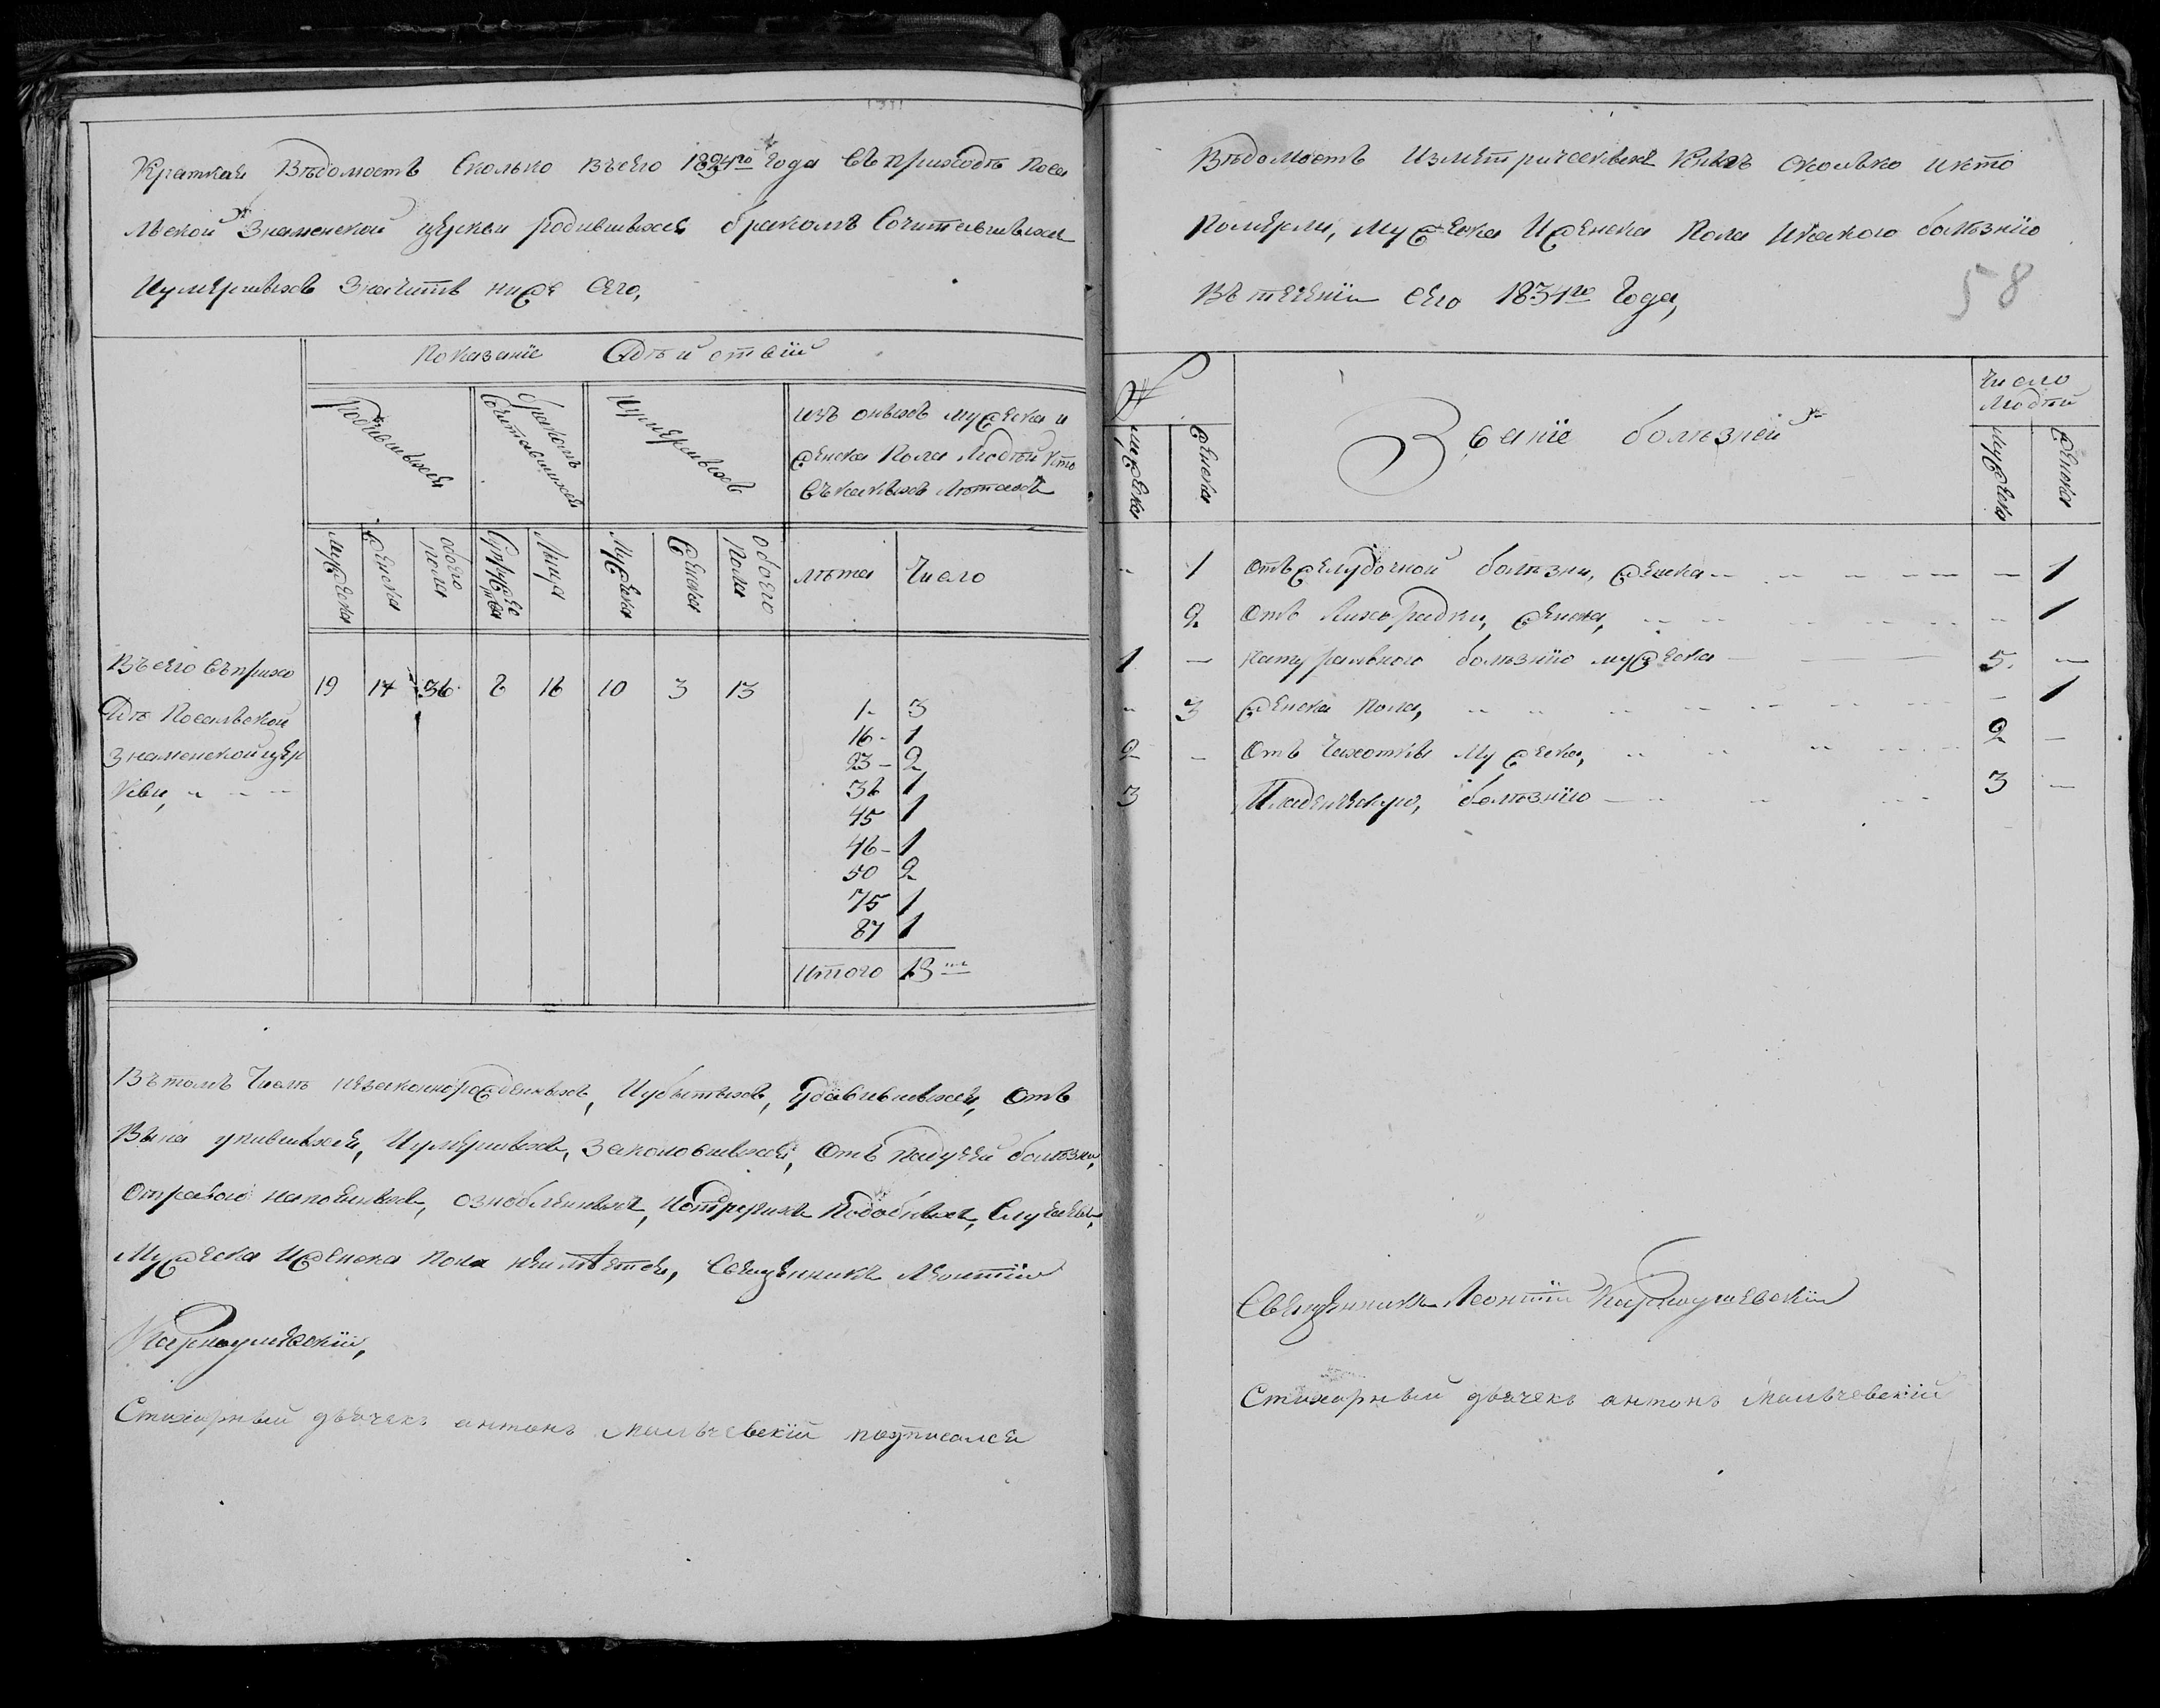 Краткая Вѣдомость Сколько Въ сего 1834го Года Въ приходѣ Поса
льской Знаменской церкви родившихся бракомъ Сочитавшихся
И умершихъ Значитъ ниже сего,
Показаніе Дѣйствій
родившихся
бракомъ Сочитавшихся
И умершихъ
изъ оныхъ мужеска и
женска Пола Людей кто
въ какихъ лѣтахъ
Мужеска
Женска
обоего пола
Супружества
Лица
Мужеска
Женска
обоего Пола
лѣта Число
Въ сего въ прихо
дѣ Посальской
Знаменской цер
кви,
19 17 36 8 16 10 3 13
1 - 3
16 - 1
23 - 2
36 1
45 1
46 - 1
50 2
75 1
87 1
Итого 13
Въ томъ Числѣ незаконнорожденныхъ, И убытыхъ, Удавившихся, Отъ
Вына упившихся, И умершихъ, Заколовшихся, Отъ падучей болѣзни,
Отравою напоенныхъ, ознобленныхъ, И отъ другихъ Подобныхъ, Случаевъ,
Мужеска И женска пола неимѣется, Священникъ Леонтій
Карноушевскій,
Стихарный дьячекъ антонъ Мальчевскій подписался
Вѣдомость Изъ метрическыхъ Книгъ сколько и кто
Померли, Мужеска И женска Пола И какого болѣзнію
Въ теченіи сего 1834го Года,
58
№
Мужеска
Женска
Званіе болѣзней
Число Людей
Мужеска
Женска
- 1 Отъ желудочной болѣзни, женска - 1
2 Отъ Лихорадки, женска, - 1
1 - Натуральною болѣзнію мужеска 5. -
- 3 женска пола, - 1
2 - Отъ Чахотки мужеска, 2 -
3 Младенческую, болѣзнію 3 -
Священникъ Леонтій Карноушевскій
Стихарный дьячекъ антонъ Мальчевскій